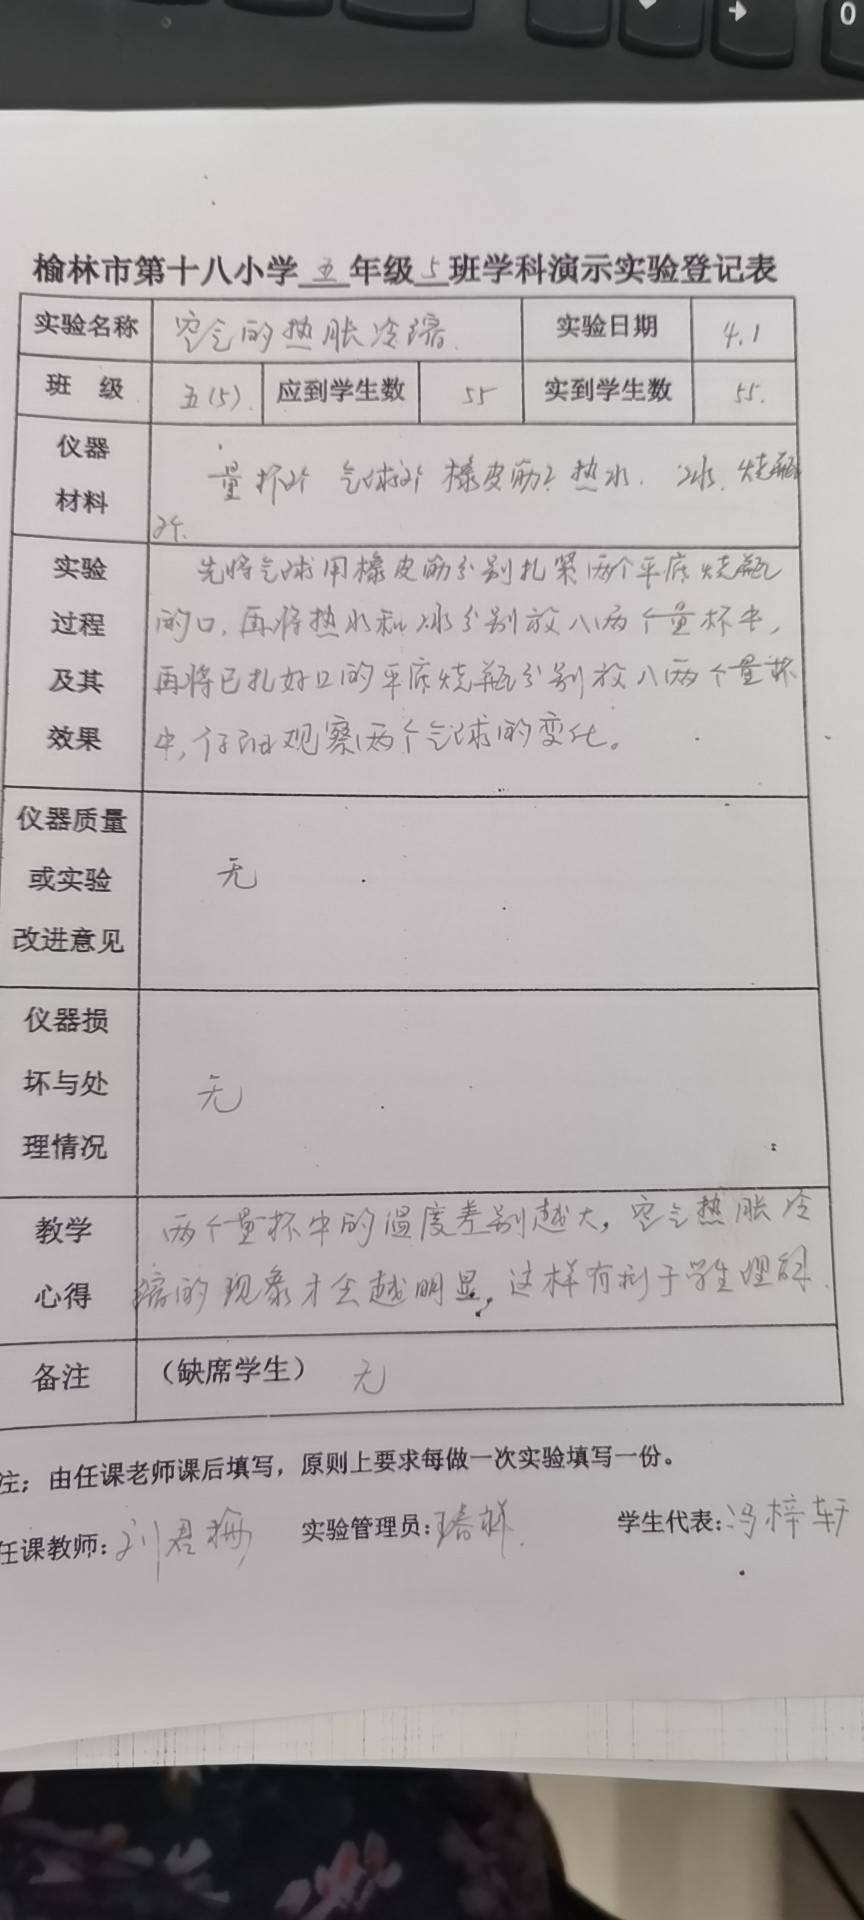 0
榆林市第十八小学 五 年级 5 班学科演示实验登记表
实验名称 空气的热胀冷缩. 实验日期 4.1
班 级 五(5). 应到学生数 55 实到学生数 55.
仪器
材料
量杯2个 气球2个 橡皮筋2 热水. 冰. 烧瓶
2个.
实验
过程
及其
效果
先将气球用橡皮筋分别扎紧两个平底烧瓶
的口,再将热水和冰分别放入两个量杯中,
再将已扎好口的平底烧瓶分别放入两个量杯
中,仔细观察两个气球的变化。
仪器质量
或实验
改进意见
无
仪器损
坏与处
理情况
无
教学
心得
两个量杯中的温度差别越大,空气热胀冷
缩的现象才会越明显,这样有利于学生理解.
备注 (缺席学生) 无
注；由任课老师课后填写，原则上要求每做一次实验填写一份。
任课教师: 刘君梅 实验管理员: 学生代表: 冯梓轩